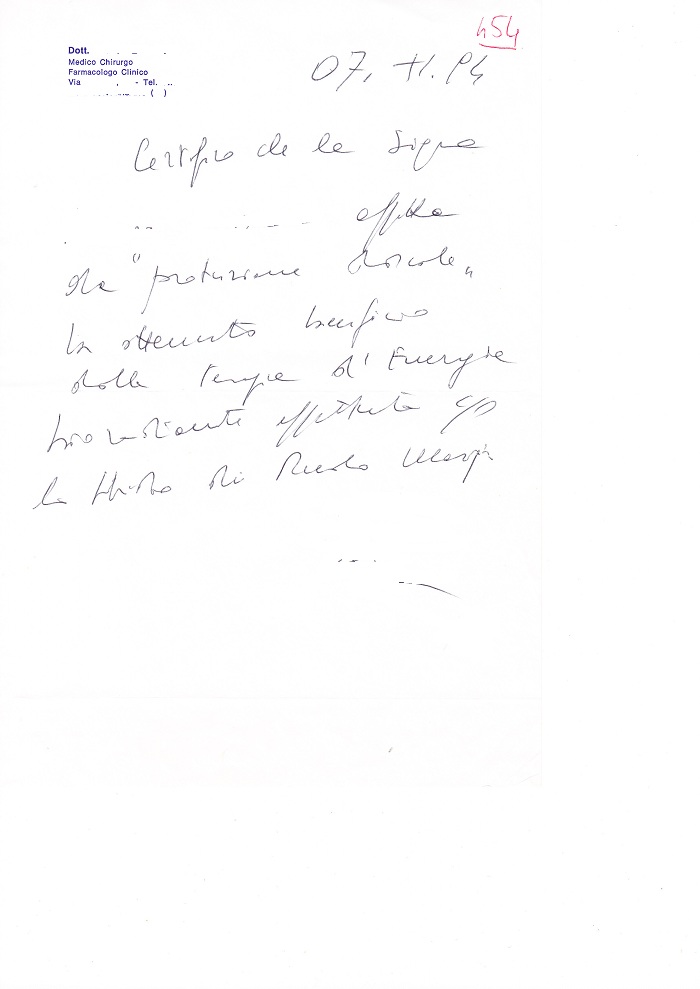 454
Dott.
Medico Chirurgo
Farmacologo Clinico
Via - Tel.
( )
07.
Certifico che la Sigra
affetta
da "protuzione discale"
ha ottenuto beneficio
dalla terapia d'Energia
bioradiante effettuata
lo di